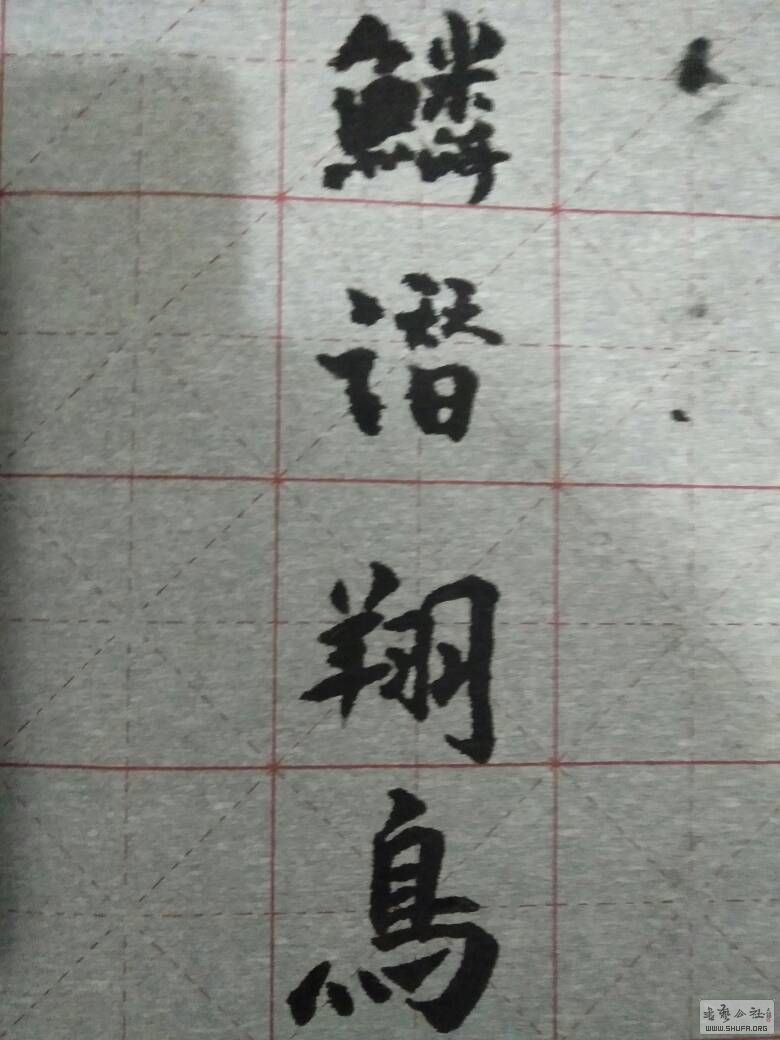 鱗潜翔鳥
書藝公社
WWW.SHUFA.ORG